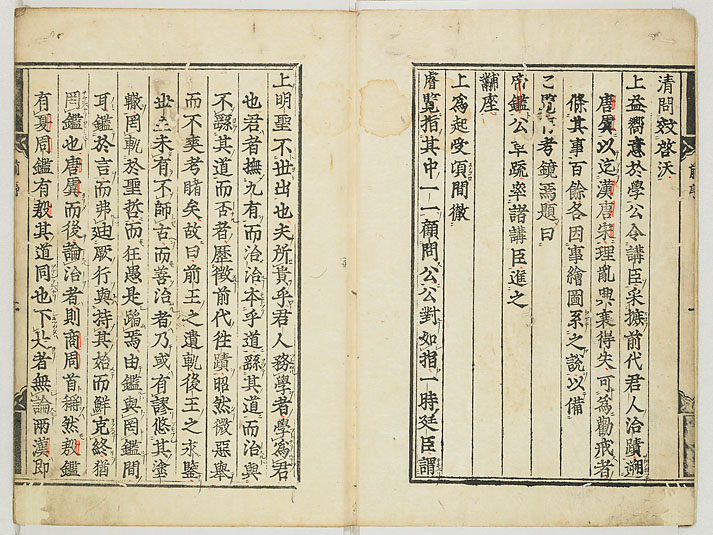 清問效啓沃
上益嚮意於學公令講臣采摭前代君人治蹟遡
唐虞以迄漢唐宋理亂興衰得失可爲勸戒者
條其事百餘各因事繪圖系之說以備
乙覽作考鏡焉題曰
帝鑑公卒䟽率諸講臣進之
黼座
上爲起受頃間徹
睿覽指其中一一顧問公公對如指一時廷臣謂
上明聖不世出也夫所貴乎君人務學者學爲君
也君者撫九有而治治本乎道繇其道而治與
不繇其道而否者歷徵前代徃蹟昭然徵惡舉
而不爽考睹矣故曰前王之遺軌後王之永鑒
世主未有不師古而善治者乃或有謬悠其塗
轍罔軌於聖哲而狂愚是蹈焉由鑑與罔鑑間
耳鑑於言而弗迪厥行與持其始而鮮克終猶
罔鑑也唐虞而後論治者則商周首稱然殷鑑
有夏周鑑有殷其道同也下此者無論兩漢即
前序